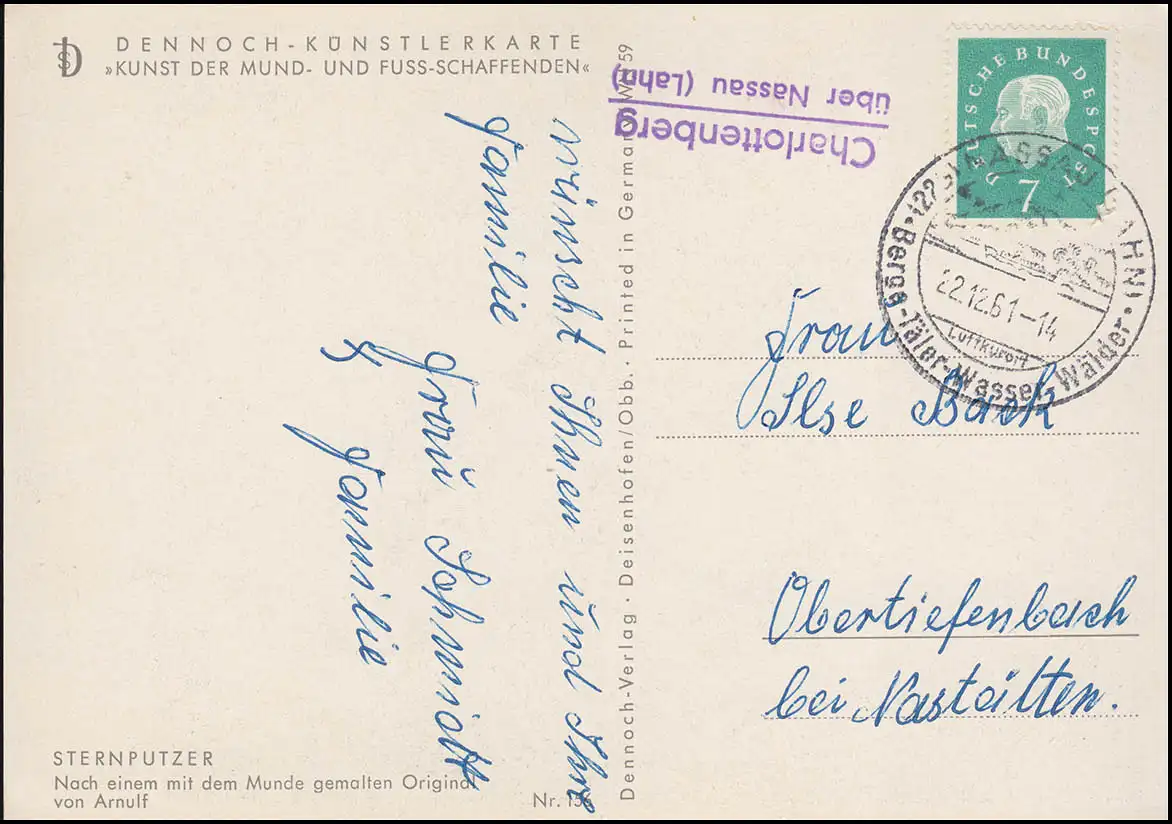 DENNOCH-KÜNSTLERKARTE
»KUNST DER MUND- UND FUSS-SCHAFFENDEN«
wünscht Ihnen und Ihre
Familie
Frau Schmidt
Familie
STERNPUTZER
Nach einem mit dem Munde gemalten Original
von Arnulf
Nr. 15
Dennoch-Verlag · Deisenhofen/Obb. · Printed in Germany · W 59
Charlottenberg
über Nassau (Lahn)
DEUTSCHE BUNDESPOST
7
NASSAU (LAHN)
22.12.61-14
Luftkurort
Berge-Täler-Wasser-Wälder
Frau
Ilse Back
Obertiefenbach
bei Nastätten.